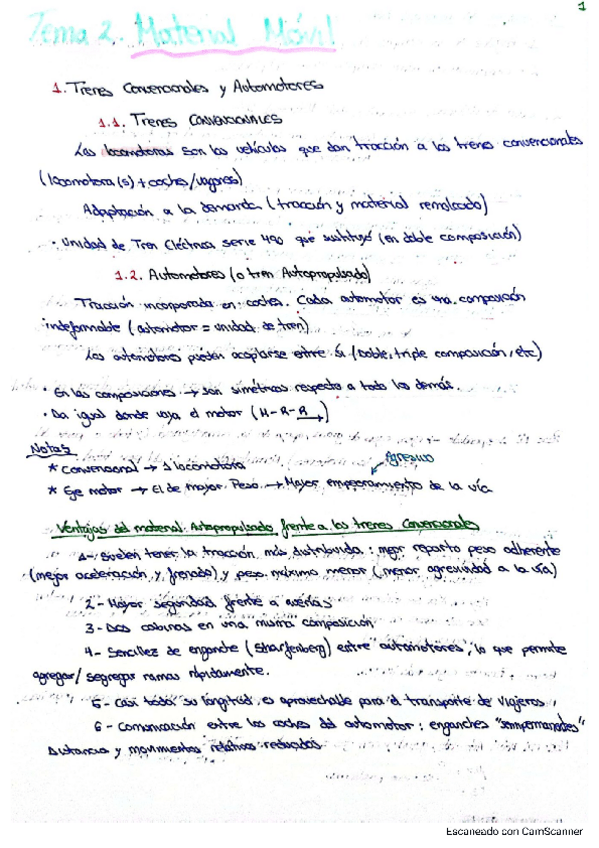 1
Tema 2. Material Móvil
1. Trenes Convencionales y Automotores
1.1. Trenes CONVENCIONALES
Las locomotoras son los vehículos que dan tracción a los trenes convencionales
(locomotora(s) + coches/vagones)
Adaptación a la demanda (tracción y material remolcado)
· Unidad de Tren Eléctrica serie 490 que sustituyó (en doble composición)
1.2. Automotores (o tren Autopropulsado)
Tracción incorporada en coches. Cada automotor es una composición
indeformable (automotor = unidad de tren)
Los automotores pueden acoplarse entre sí (Doble, triple composición, etc)
· En las composiciones → son simétricas respecto a todo los demás.
· Da igual donde vaya el motor (M-R-R)
Notas
Agresivo
* Convencional → 1 locomotora
* Eje motor → El de mayor Peso → Mayor empeoramiento de la vía
Ventajas del material Autopropulsado frente a los trenes Convencionales
1- Suelen tener la tracción más distribuida: mejor reparto peso adherente
(mejor aceleración y frenado) y peso máximo menor (menor agresividad a la vía)
2- Mayor seguridad frente a averías
3- Dos cabinas en una "misma" composición
4- Sencillez de enganche (Sharfenberg) entre "automotores", lo que permite
agregar/segregar ramas rápidamente.
5- Casi toda su longitud es aprovechable para el transporte de viajeros
6- Comunicación entre los coches del automotor: enganches "semipermanentes"
Distancia y movimientos relativos reducidos
Escaneado con CamScanner